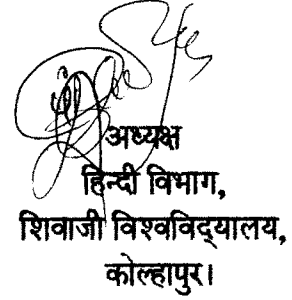 अध्यक्ष
हिन्दी विभाग,
शिवाजी विश्वविद्यालय,
कोल्हापुर।